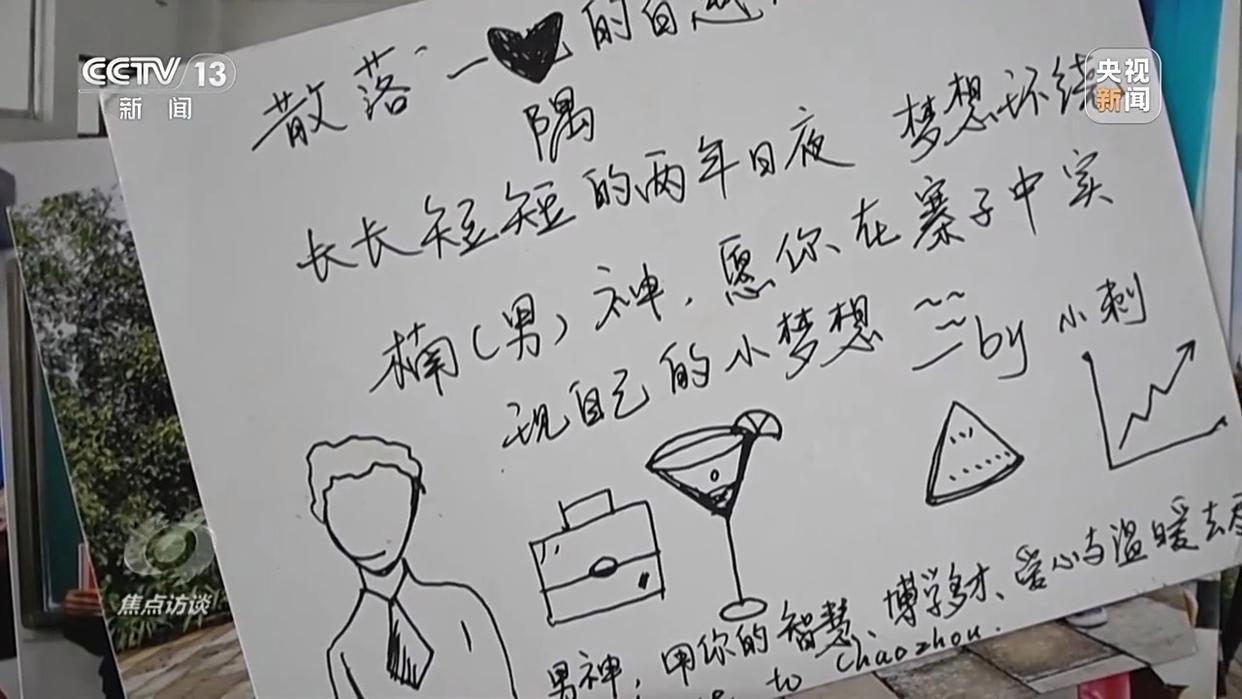 CCTV 13
新闻
央视
新闻
散落一
的自
隅
长长短短的两年日夜 梦想环绕
楠(男)神,愿你在寨子中实
现自己的小梦想
by 小刺
男神,用你的智慧、博学多才、爱心与温暖去
to Chaozhou.
焦点访谈